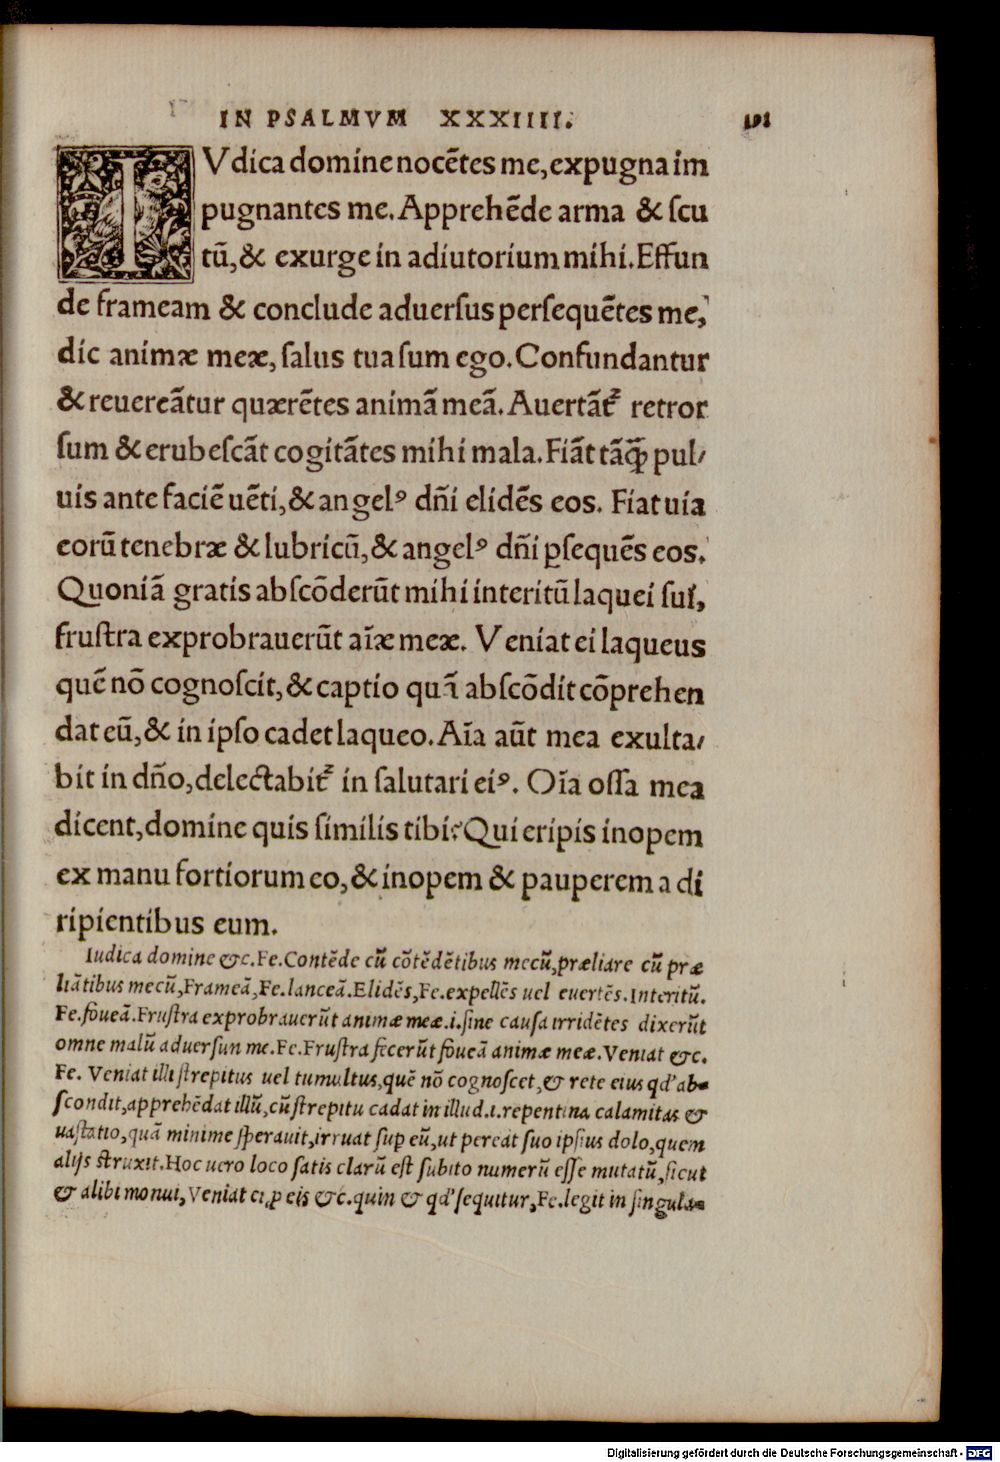 IN PSALMVM XXXIIII. 191
IVdica domine nocētes me, expugna im
pugnantes me. Apprehēde arma & ſcu
tū, & exurge in adiutorium mihi. Effun
de frameam & conclude aduerſus perſequētes me,
dic animæ meæ, ſalus tua ſum ego. Confundantur
& reuereātur quærētes animā meā. Auertāt᷑ retror
ſum & erubeſcāt cogitātes mihi mala. Fiāt tāꝙ̄ pul⸗
uis ante faciē uēti, & angelꝰ dñi elidēs eos. Fiat uia
eorū tenebræ & lubricū, & angelꝰ dñi ꝑſequēs eos.
Quoniā gratis abſcōderūt mihi interitū laquei ſui,
fruſtra exprobrauerūt aīæ meæ. Veniat ei laqueus
quē nō cognoſcit, & captio quā abſcōdit cōprehen
dat eū, & in ipſo cadet laqueo. Aīa aūt mea exulta⸗
bit in dño, delectabit᷑ in ſalutari eiꝰ. Oīa oſſa mea
dicent, domine quis ſimilis tibi? Qui eripis inopem
ex manu fortiorum eo, & inopem & pauperem a di
ripientibus eum.
Iudica domine &c. Fe. Contēde cū cōtēdētibus mecū, præliare cū præ
liātibus mecū, Frameā, Fe. lanceā. Elidēs, Fe. expellēs uel euertēs. Interitū.
Fe. foueā. Fruſtra exprobrauerūt animæ meæ. i. ſine cauſa irridētes dixerūt
omne malū aduerſun me. Fe. Fruſtra fecerūt foueā animæ meæ. Veniat &c.
Fe. Veniat illi ſtrepitus uel tumultus, quē nō cognoſcet, & rete eius qd' ab⸗
ſcondit, apprehēdat illū, cū ſtrepitu cadat in illud. i. repentina calamitas &
uaſtatio, quā minime ſperauit, irruat ſup eū, ut pereat ſuo ipſius dolo, quem
alijs ſtruxit. Hoc uero loco ſatis clarū eſt ſubito numerū eſſe mutatū, ſicut
& alibi monui, Veniat ei, ꝓ eis &c. quin & qd' ſequitur, Fe. legit in ſingula⸗
Digitalisierung gefördert durch die Deutsche Forschungsgemeinschaft - DFG